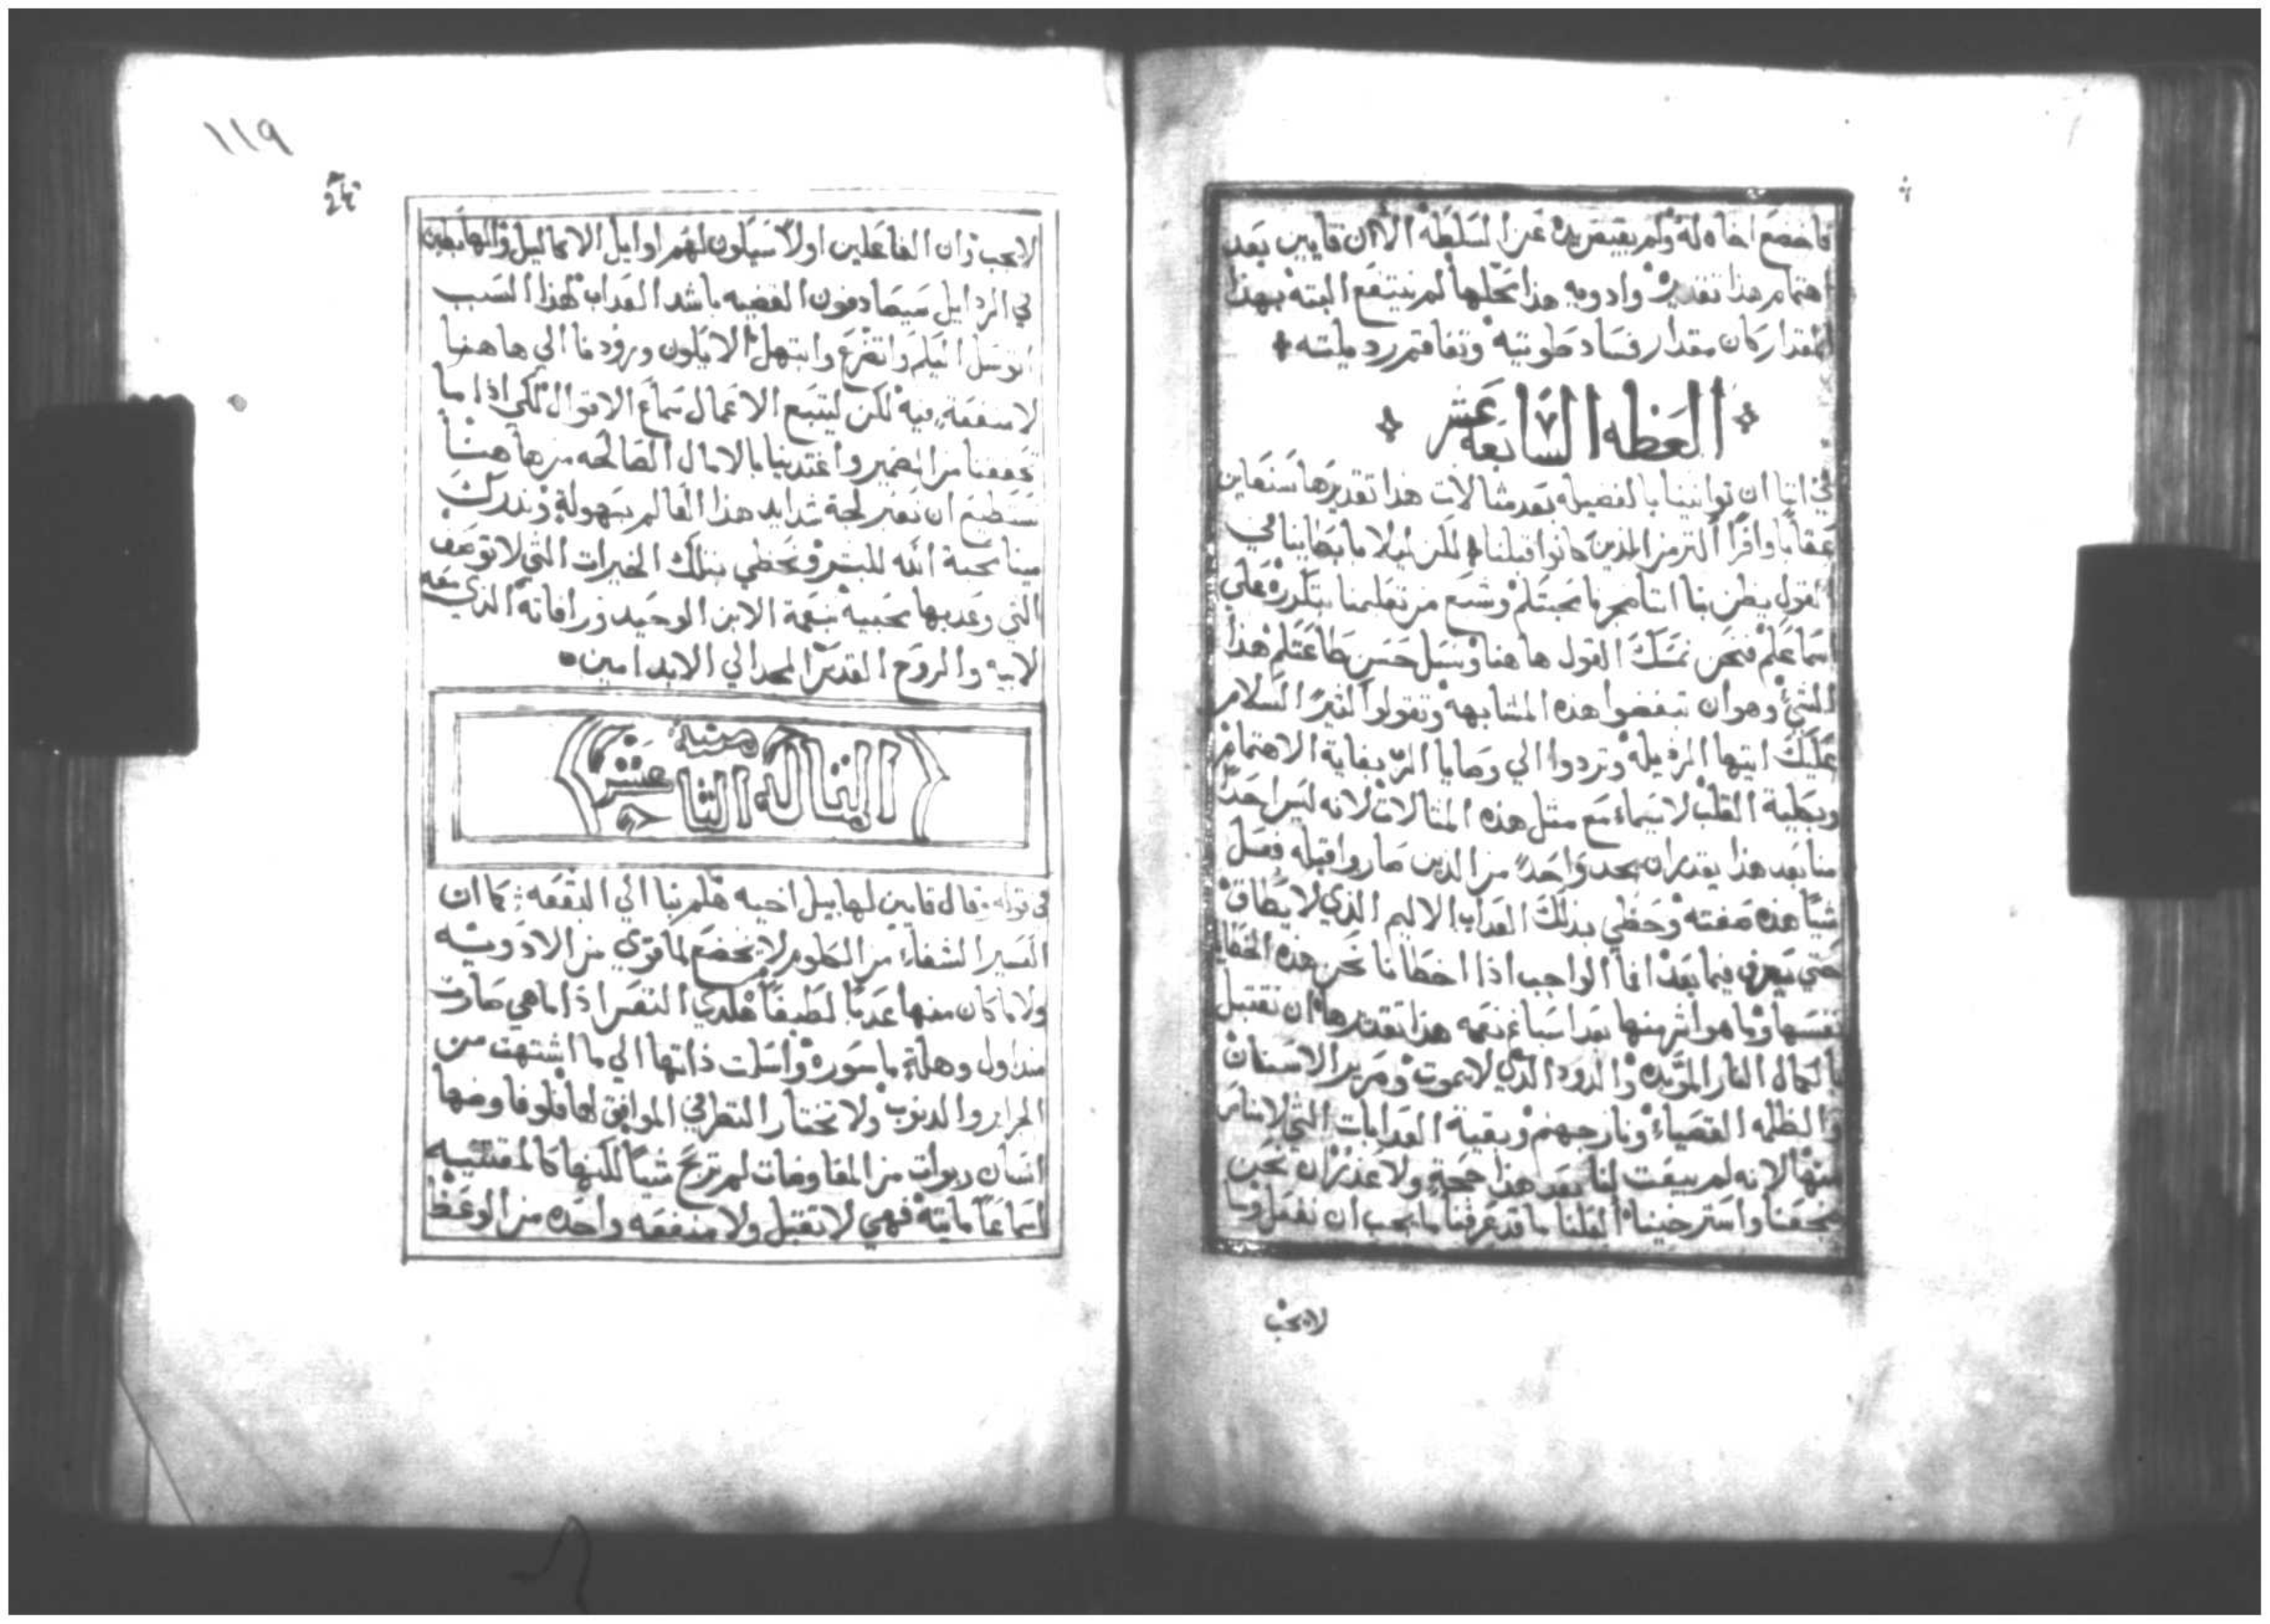 فاخضع اخاه له ولم يقبض يده عن السلطه الا ان قايين بعد
اهتمام هذا تقديره وادويه هذا محلها لم ينتفع البته بهذا
المقدار كان مقدار فساد طويته وتفاقم رديلته
العظه السابعه عشر
في اننا ان توانينا بالفضيله بعد مثالات هذا تقديرها سنعاين
عقابا وافرا اكثر من الذين كانوا قبلنا لكن ليلا ما بطاينا في
القول يظن بنا اننا ضجرنا محبتكم وشبع من تعليمنا بتكرره علي
اسماعكم فنحن نمسك القول هاهنا ونسل حسن طاعتكم هذا
الشي وهو ان تبغضوا هذه المشابهه وتقولوا السلام
عليك ايتها الرديله وتردوا الي وصايا الرب بغاية الاهتمام
وبكلية القلب لا سيما مع مثل هذه المثالات لانه ليس احد
منا بعد هذا يقدر ان يجد واحد من الذين صاروا قبله فعل
شيا هذه صفته وحظي بذلك العداب الاليم الذي لا يطاق
حتي يعرف فيما بعد الواجب اذا اخطانا نحن هذه الخطايا
نفسها وما هو اشر منها بعد اسباغ نعمه هذا تقديرها ان نقتبل
بالكمال النار الموبده والدود الذي لا يموت وصرير الاسنان
والظلمه القصياء ونار جهنم وبقية العدابات التي لا مناص
منها لانه لم يبقت لنا بعد هذا حجة ولا عذر ان نحن
ضجعنا واسترخينا اذ كلنا ما قد عرفنا ما يجب ان نفعل وما
لا يجب
١١٩
لا يجب وان الفاعلين اولا سيكون لهم اوايل الاكاليل والهابطين
في الردايل سيصادفون القضيه باشد العداب لهذا السبب
اتوسل اليكم واتضرع وابتهل الا يكون ورودنا الي هاهنا
لا منفعة فيه لكن ليتبع الاعمال سماع الاقوال لكي اذا ما
تحققنا من الضمير واغتدينا بالامال الصالحه من هاهنا
نستطيع ان نعبر لجة شدايد هذا العالم بسهولة وندرك
مينا محبة الله للبشر ونحظي بتلك الخيرات التي لا توصف
التي وعد بها محبيه بنعمة الابن الوحيد ورافاته الذي معه
لابيه والروح القدس المجد الي الابد امين
المقالة الثامنة عشر
في قوله وقال قايين لهابيل اخيه هلم بنا الي البقعه كما ان
العسير الشفاء من الكلوم لا يخضع لما قوي من الادويه
ولا ما كان منها عذبا لطيفا هكدي النفس اذا ما هي صارت
منذ اول وهلة ماسورة واسلمت ذاتها الي ما اشتهت من
الجراير والدنوب ولا تختار النظر في الموافق لها فلو فاوضها
انسان ربوات من المفاوضات لم تربح شيا لكنها كالمقتنيه
اسماعا مايته فهي لا تقتبل ولا منفعه واحده من الوعظ